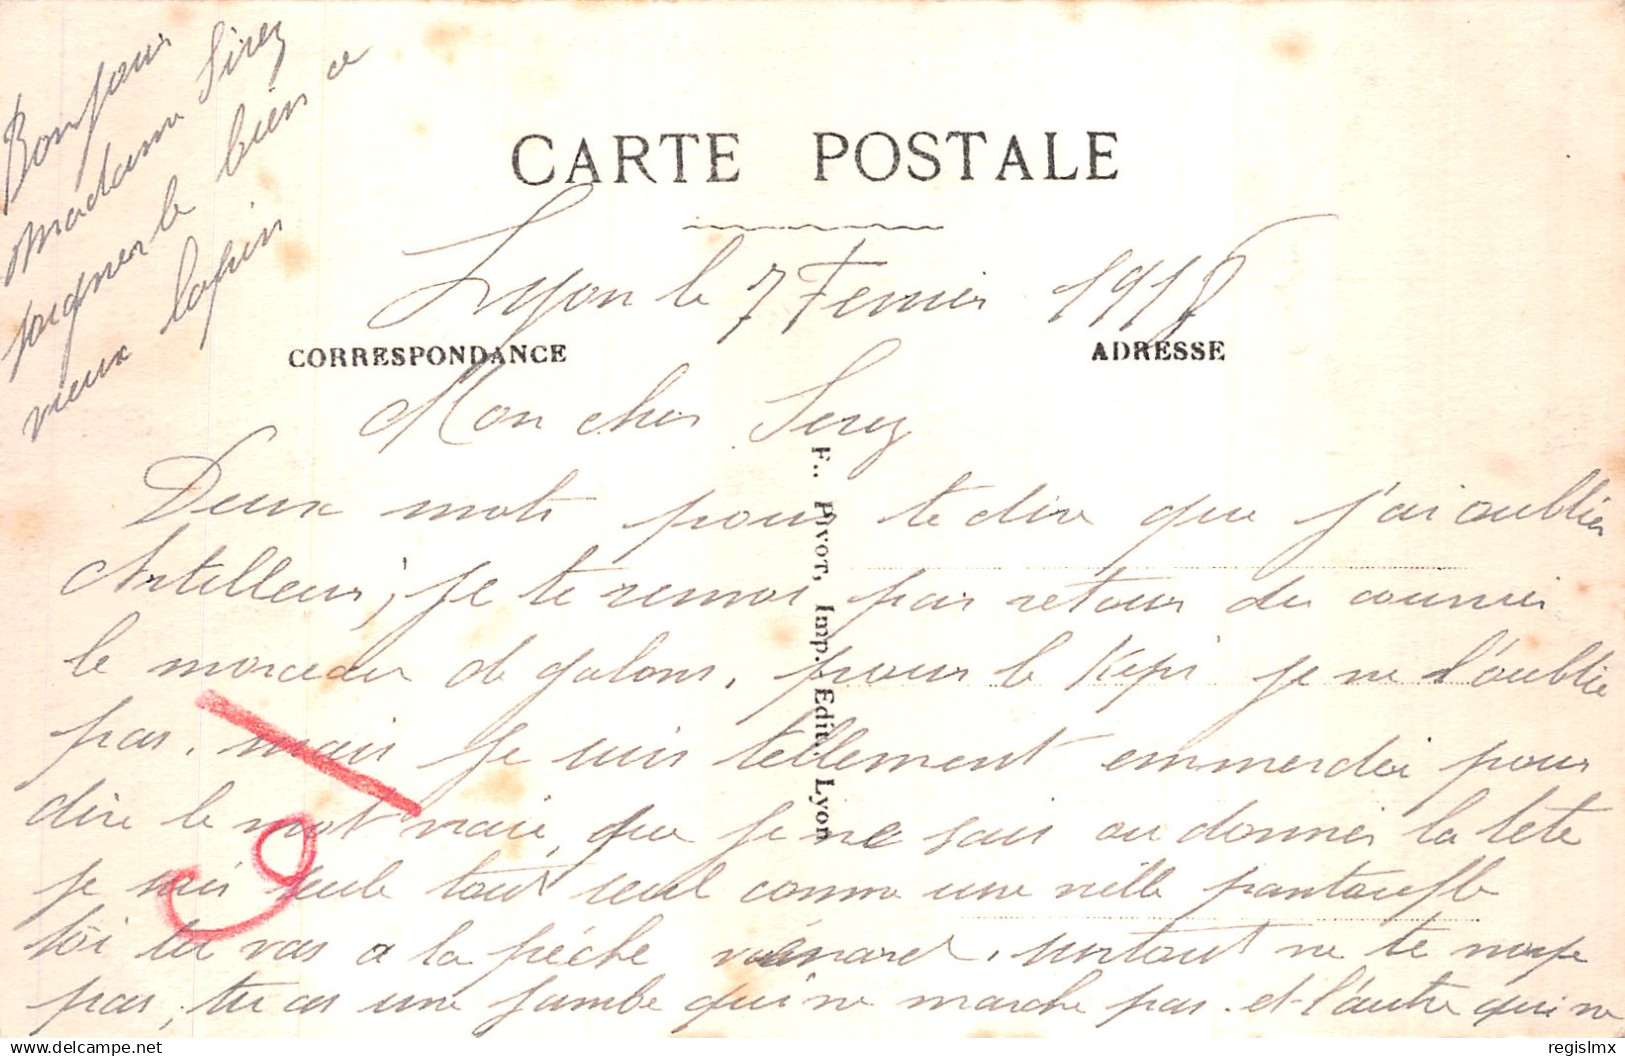 Bonjour
Madame Sirez
soigner le bien ce
vieux lapin
CARTE POSTALE
Lyon le 7 Fevrier 1918
CORRESPONDANCE
ADRESSE
Mon cher Serez
Deux mots pour te dire que j'ai oublier
Artilleur, je te remoi par retour du courrier
le morceau de galons, pour le Kepi je ne l'oublie
pas. mais je suis tellement emmerder pour
dire le mot vraie, que je ne sais ou donner la tete
je suis seule tout seul comme une vielle pantoufle
toi tu vas a la pêche veinard. surtout ne te noye
pas, tu as une jambe qui ne marche pas et l'autre qui ne
F.. PIVOT, Imp.-Edit., Lyon
delcampe.net
regislmx